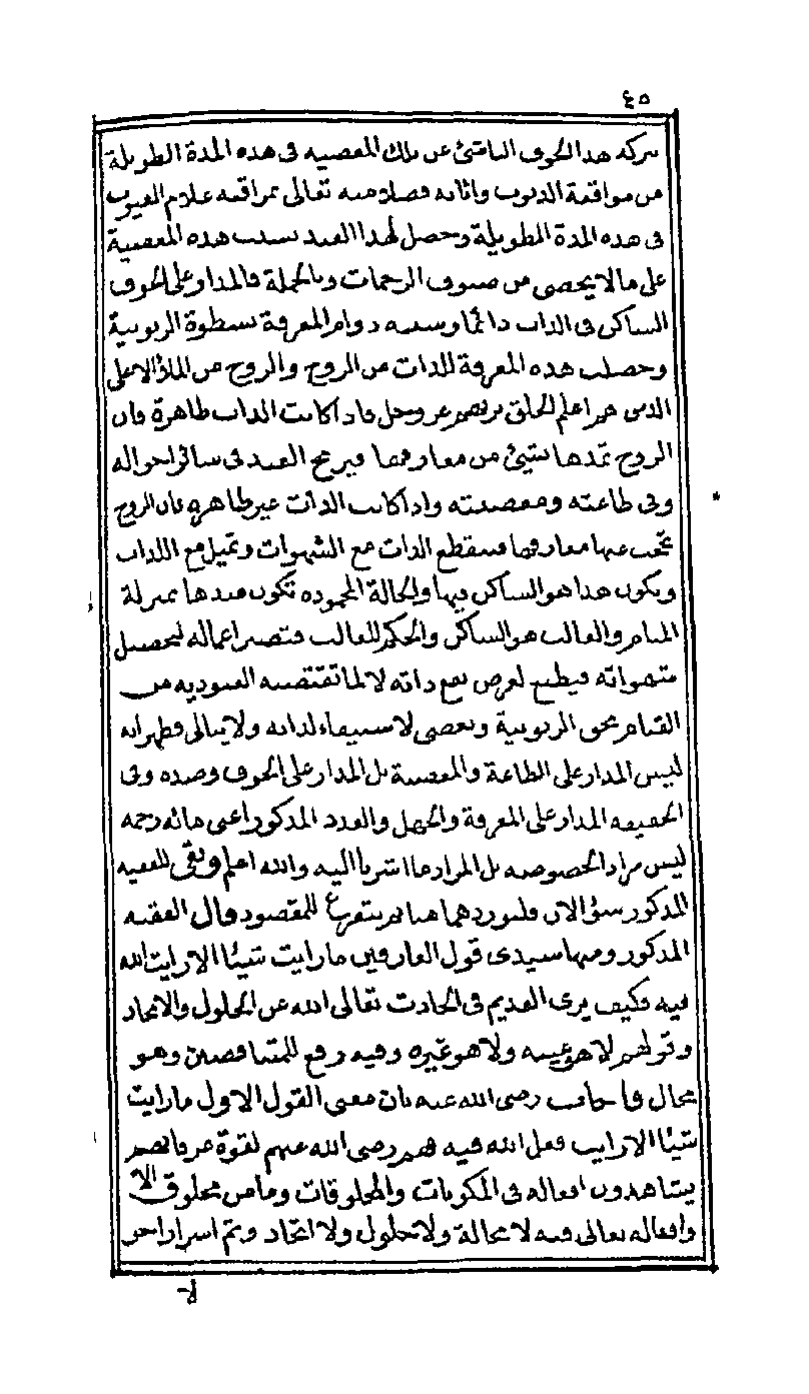 ٤٥
بركة هذا الخوف الناشئ عن تلك المعصية في هذه المدة الطويلة
من مواقعة الذنوب واثابه فضلا منه تعالى بمراقبة علام الغيوب
في هذه المدة الطويلة وحصل لهذا العبد بسبب هذه المعصية
على ما لا يحصى من صنوف الرحمات وبالجملة فالمدار على الخوف
الساكن في الذات دائما وسببه دوام المعرفة بسطوة الربوبية
وحصلت هذه المعرفة للذات من الروح والروح من الملأ الاعلى
الذين هم اعلم الخلق بربهم عز وجل فاذا كانت الذات طاهرة فان
الروح تمدها بشئ من معارفها فيربح العبد في سائر احواله
وفي طاعته ومعصيته واذا كانت الذات غير طاهرة فان الروح
تحجب عنها معارفها فتنقطع الذات مع الشهوات وتميل مع اللذات
ويكون هذا هو الساكن فيها والحالة المحمودة تكون عندها بمنزلة
المنام والغالب هو الساكن والحكم للغالب فتصير اعماله لتحصيل
شهواته فيطيع لغرض نفع ذاته لا لما تقتضيه العبودية من
القيام بحق الربوبية ويعصي لاستيفاء لذاته ولا يبالي فظهر انه
ليس المدار على الطاعة والمعصية بل المدار على الخوف وضده وفي
الحقيقة المدار على المعرفة والجهل والعدد المذكور اعني مائة رحمة
ليس مراد الخصوصه بل المراد ما اشرنا اليه والله اعلم وبقي للفقيه
المذكور سؤالان فلنوردهما هنا ثم نتفرغ للمقصود قال الفقيه
المذكور ومنها سيدي قول العارفين ما رايت شيئا الا رايت الله
فيه فكيف يرى القديم في الحادث تعالى الله عن الحلول والاتحاد
وقولهم لا هو عينه ولا هو غيره وفيه رفع للمتناقضين وهو
محال فاجاب رضي الله عنه بان معنى القول الاول ما رايت
شيئا الا رايت فعل الله فيه فهم رضي الله عنهم لقوة عرفانهم
يشاهدون افعاله في المكونات والمخلوقات وما من مخلوق الا
وافعاله تعالى فيه لا محالة ولا حلول ولا اتحاد وثم اسرار اخر